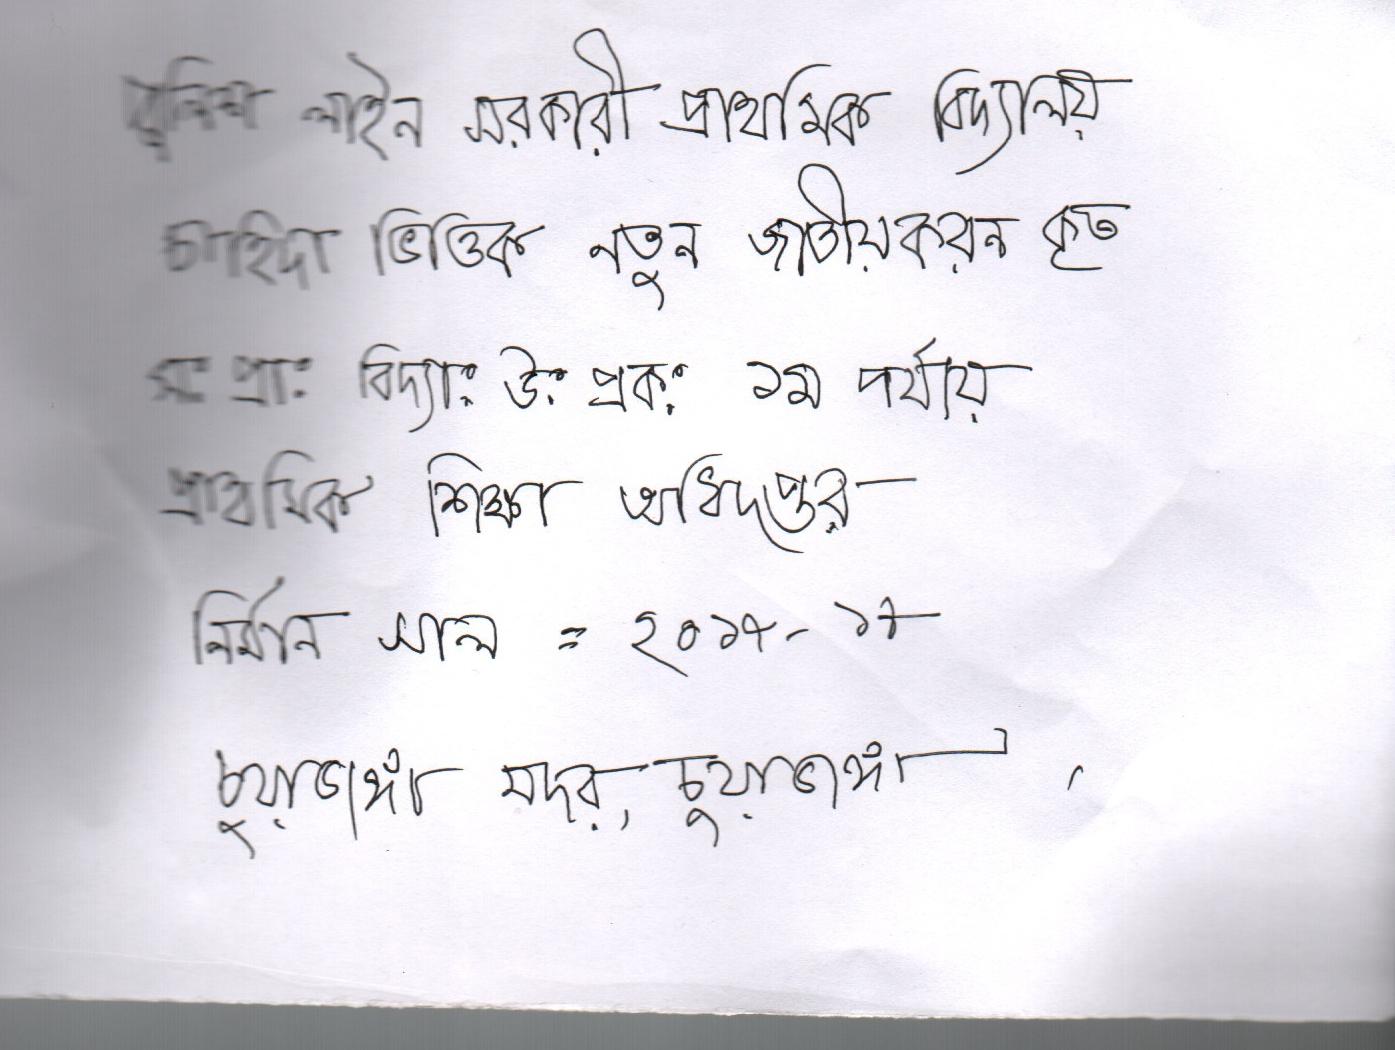 পুলিশ লাইন সরকারী প্রাথমিক বিদ্যালয়
চাহিদা ভিত্তিক নতুন জাতীয়করন কৃত
সঃ প্রাঃ বিদ্যাঃ উঃ প্রকঃ ১ম পর্যায়
প্রাথমিক শিক্ষা অধিদপ্তর
নির্মান সাল =
চুয়াডাঙ্গা সদর, চুয়াডাঙ্গা